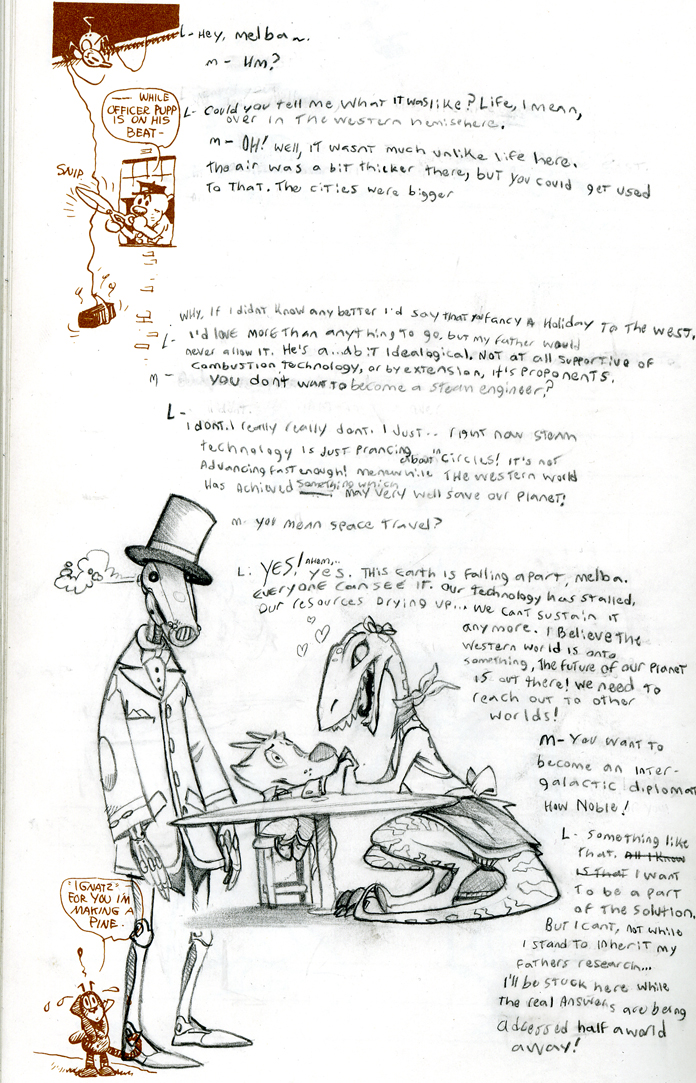 L- Hey, melba~
m- HM?
—— WHILE
OFFICER PUPP
IS ON HIS
BEAT-
SNIP
L- Could you tell me what it was like? Life, I mean,
over in the western hemisehere.
m- OH! well, it wasnt much unlike life here.
the air was a bit thicker there, but you could get used
to that. The cities were bigger
why, if I didnt know any better I'd say that you fancy a Holiday to the west.
L- I'd love more than anything to go, but my father would
never allow it. He's a... a bit idealogical. Not at all supportive of
combustion technology, or by extension, it's proponents.
m- you don't want to become a steam engineer?
L-
I dont. I really really dont. I just... right now steam
technology is just prancing about in circles! It's not
Advancing fast enough! meanwhile the western world
Has achieved something which may very well save our planet!
m- you mean space travel?
L: YES! AHEM... yes. This earth is falling apart, melba.
everyone can see it. Our technology has stalled,
our resources drying up... we cant sustain it
any more. I believe the
western world is onto
something, the future of our planet
is out there! we need to
reach out to other
worlds!
m- You want to
become an inter-
galactic diplomat
How Noble!
L- something like
that. All I know
is that I want
to be a part
of the solution.
But I cant, not while
I stand to inherit my
fathers research...
I'll be stuck here while
the real answers are being
adressed half a world
away!
"IGNATZ"
FOR YOU I'M
MAKING A
PINE.